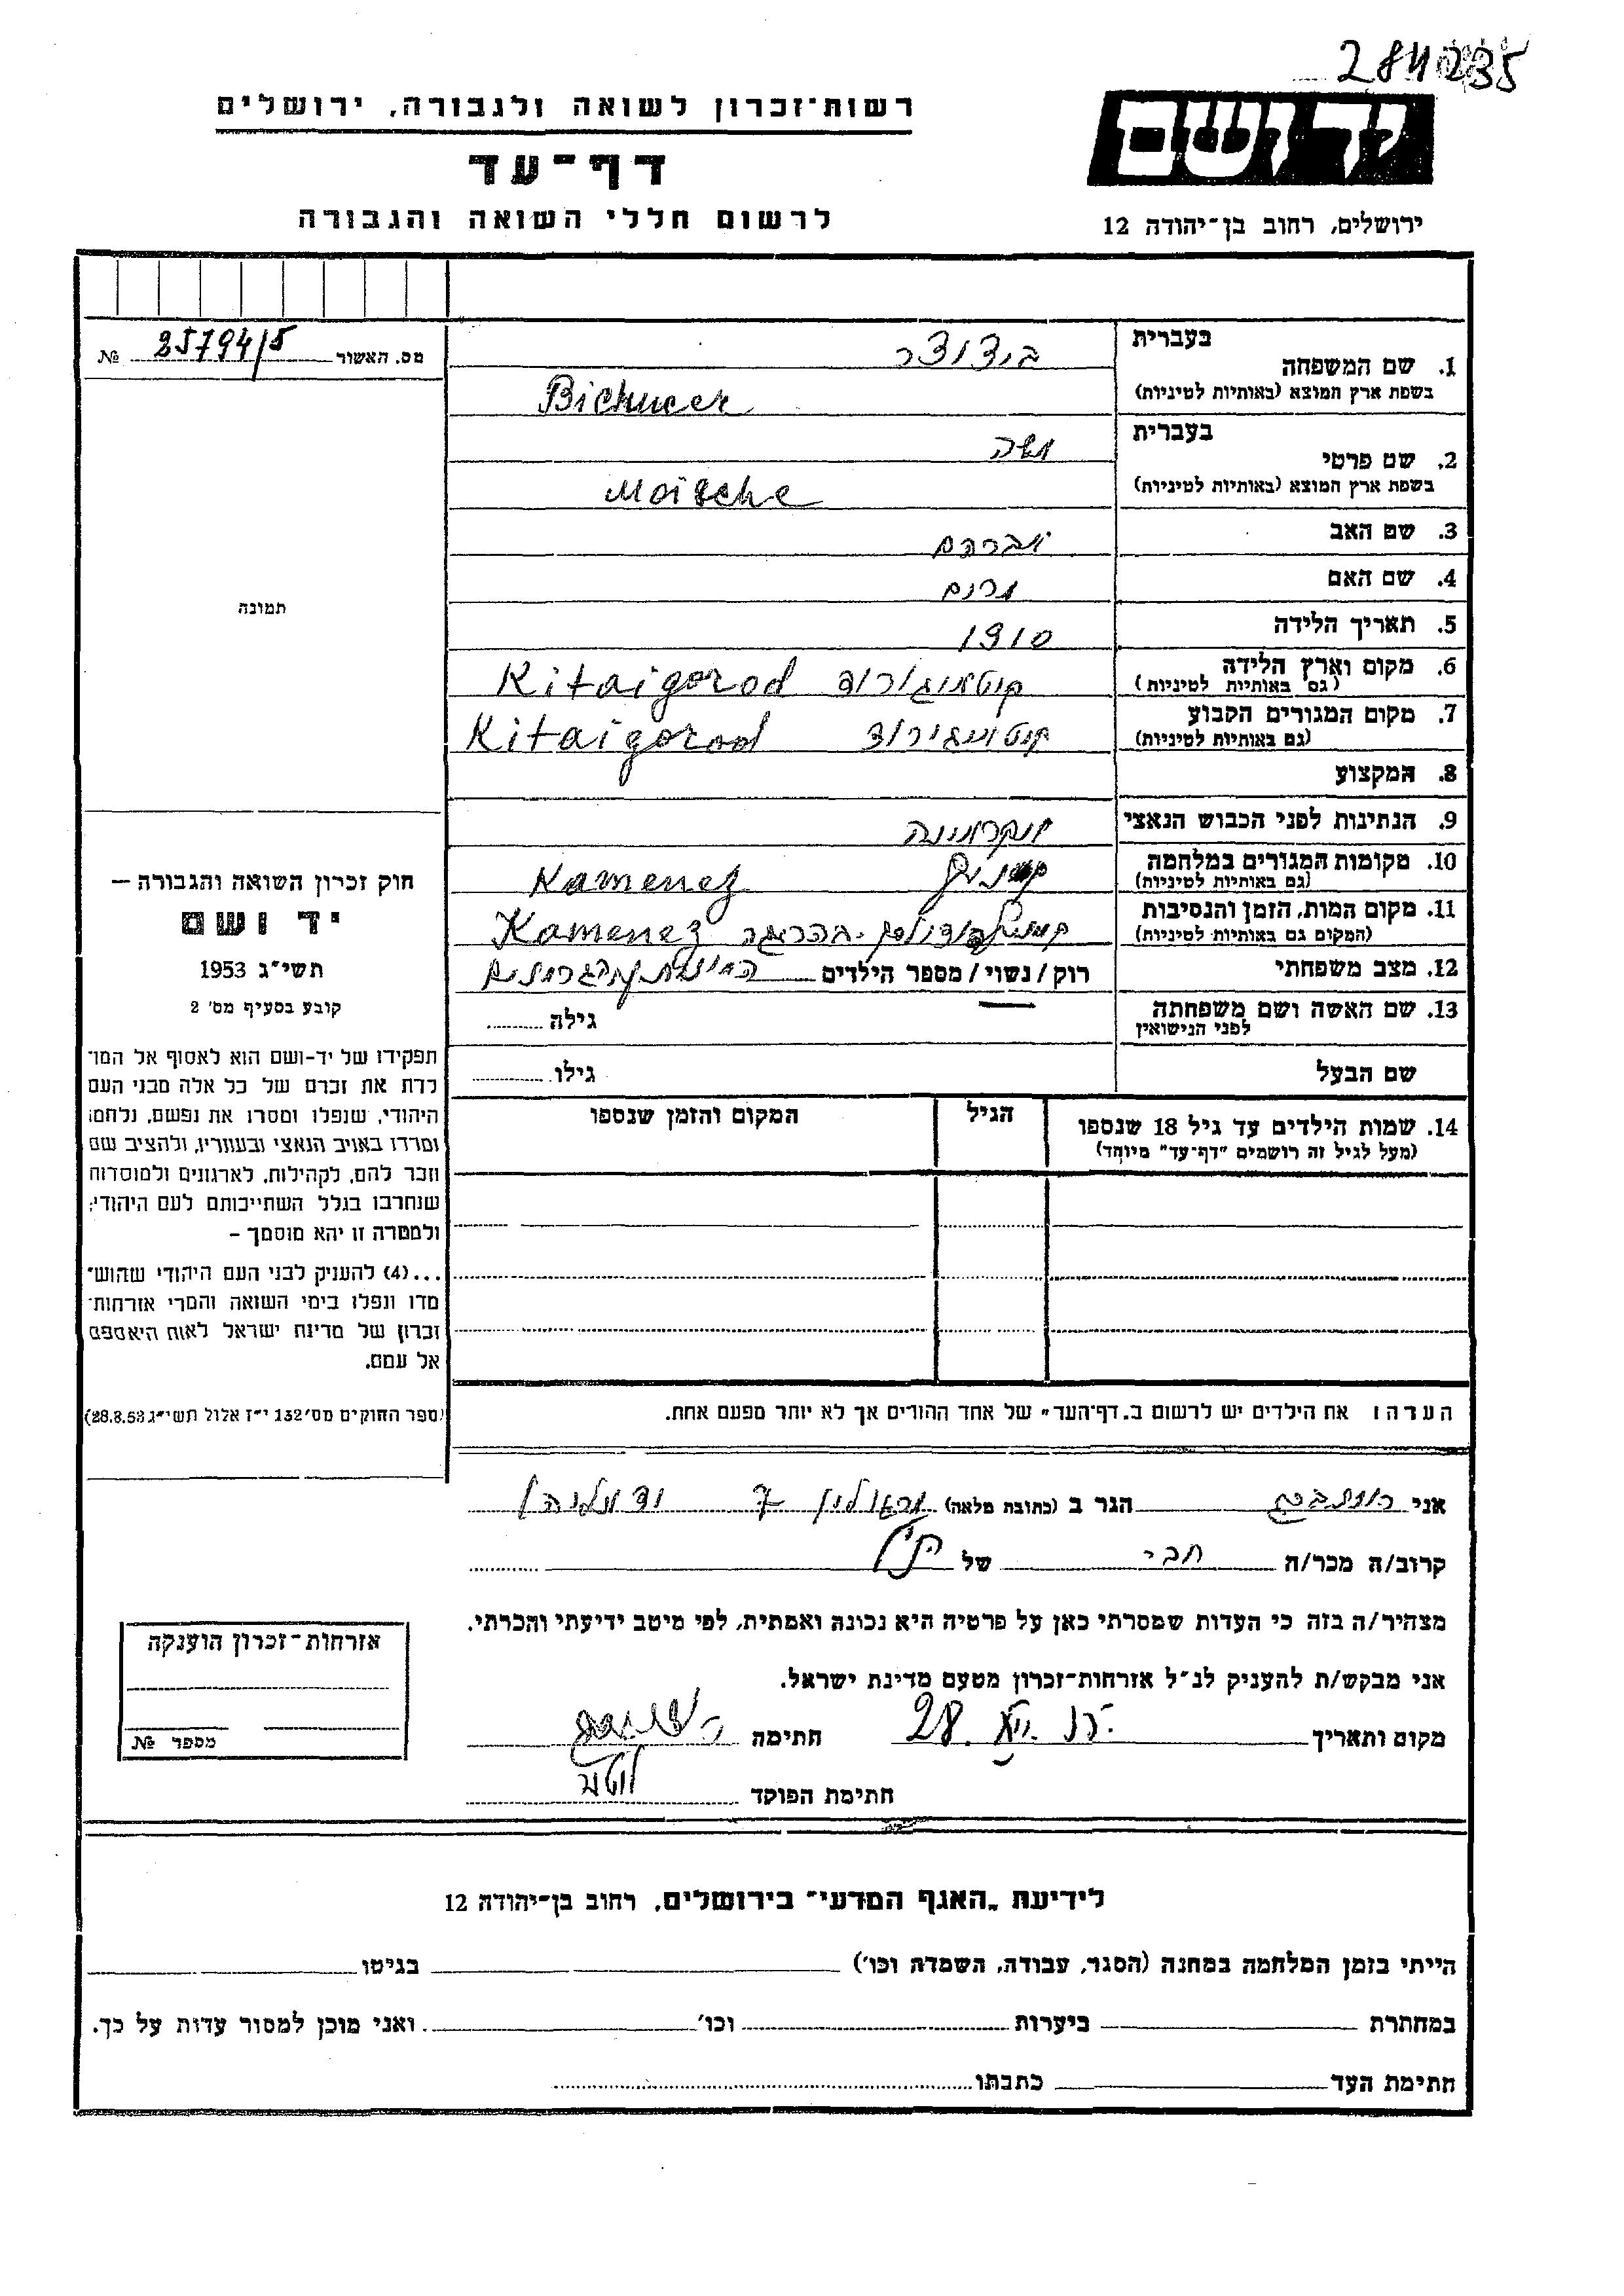 רשות־זכרון לשואה ולגבורה, ירושלים
דף־עד
לרשום חללי השואה והגבורה
יד ושם
ירושלים, רחוב בן־יהודה 12
מס. האשור 25794/5 №
תמונה
חוק זכרון השואה והגבורה —
יד ושם
תשי״ג 1953
קובע בסעיף מס׳ 2
תפקידו של יד-ושם הוא לאסוף אל המו־
לדת את זכרם של כל אלה מבני העם
היהודי, שנפלו ומסרו את נפשם, נלחמו
ומרדו באויב הנאצי ובעוזריו, ולהציב שם
וזכר להם, לקהילות, לארגונים ולמוסדות
שנחרבו בגלל השתייכותם לעם היהודי;
ולמטרה זו יהא מוסמך –
...(4) להעניק לבני העם היהודי שהוש־
מדו ונפלו בימי השואה והמרי אזרחות־
זכרון של מדינת ישראל לאות היאספם
אל עמם.
(ספר החוקים מס׳ 132 י״ז אלול תשי״ג 28.8.53)
1. שם המשפחה
בעברית
בשפת ארץ המוצא (באותיות לטיניות)
Bichucer
2. שם פרטי
בעברית משה
בשפת ארץ המוצא (באותיות לטיניות) Moische
3. שם האב אברהם
4. שם האם מרים
5. תאריך הלידה 1910
6. מקום וארץ הלידה Kitaigorod
(גם באותיות לטיניות)
7. מקום המגורים הקבוע Kitaigorod
(גם באותיות לטיניות)
8. המקצוע
9. הנתינות לפני הכבוש הנאצי אוקראינה
10. מקומות המגורים במלחמה Kamenez
(גם באותיות לטיניות)
11. מקום המות, הזמן והנסיבות Kamenez
(המקום גם באותיות לטיניות)
12. מצב משפחתי רוק/נשוי/מספר הילדים
13. שם האשה ושם משפחתה גילה
לפני הנישואין
שם הבעל גילו
14. שמות הילדים עד גיל 18 שנספו הגיל המקום והזמן שנספו
(מעל לגיל זה רושמים "דף-עד" מיוחד)
הערה: את הילדים יש לרשום ב„דף־העד״ של אחד ההורים אך לא יותר מפעם אחת.
אני הגר ב (כתובת מלאה)
קרוב/ה מכר/ה של
מצהיר/ה בזה כי העדות שמסרתי כאן על פרטיה היא נכונה ואמתית, לפי מיטב ידיעתי והכרתי.
אני מבקש/ת להעניק לנ״ל אזרחות־זכרון מטעם מדינת ישראל.
מקום ותאריך חתימה
חתימת הפוקד
אזרחות־זכרון הוענקה
מספר №
לידיעת „האגף המדעי״ בירושלים, רחוב בן־יהודה 12
הייתי בזמן המלחמה במחנה (הסגר, עבודה, השמדה וכו׳) בגיטו
במחתרת ביערות וכו׳ ואני מוכן למסור עדות על כך.
חתימת העד כתבתו